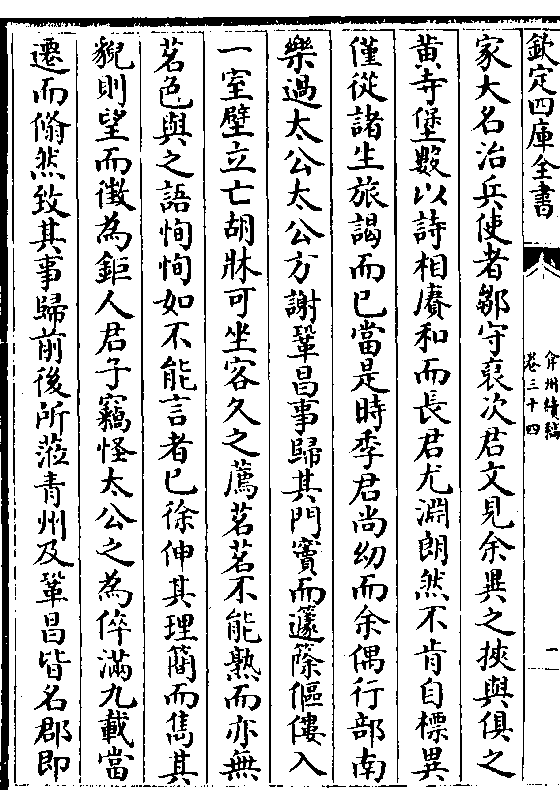 欽定四庫全書
弇州續稿
卷三十四
一
家大名治兵使者鄒守裒次君文見余異之挾與俱之
黄寺堡數以詩相賡和而長君尤淵朗然不肯自標異
僅從諸生旅謁而已當是時季君尚幼而余偶行部南
樂過太公太公方謝鞏昌事歸其門竇而蘧篨傴僂入
一室壁立亡胡牀可坐客久之薦茗茗不能熟而亦無
茗色與之語恂恂如不能言者已徐伸其理簡而雋其
貌則望而徵為鉅人君子竊怪太公之為倅滿九載當
遷而翛然致其事歸前後所蒞青州及鞏昌皆名郡即